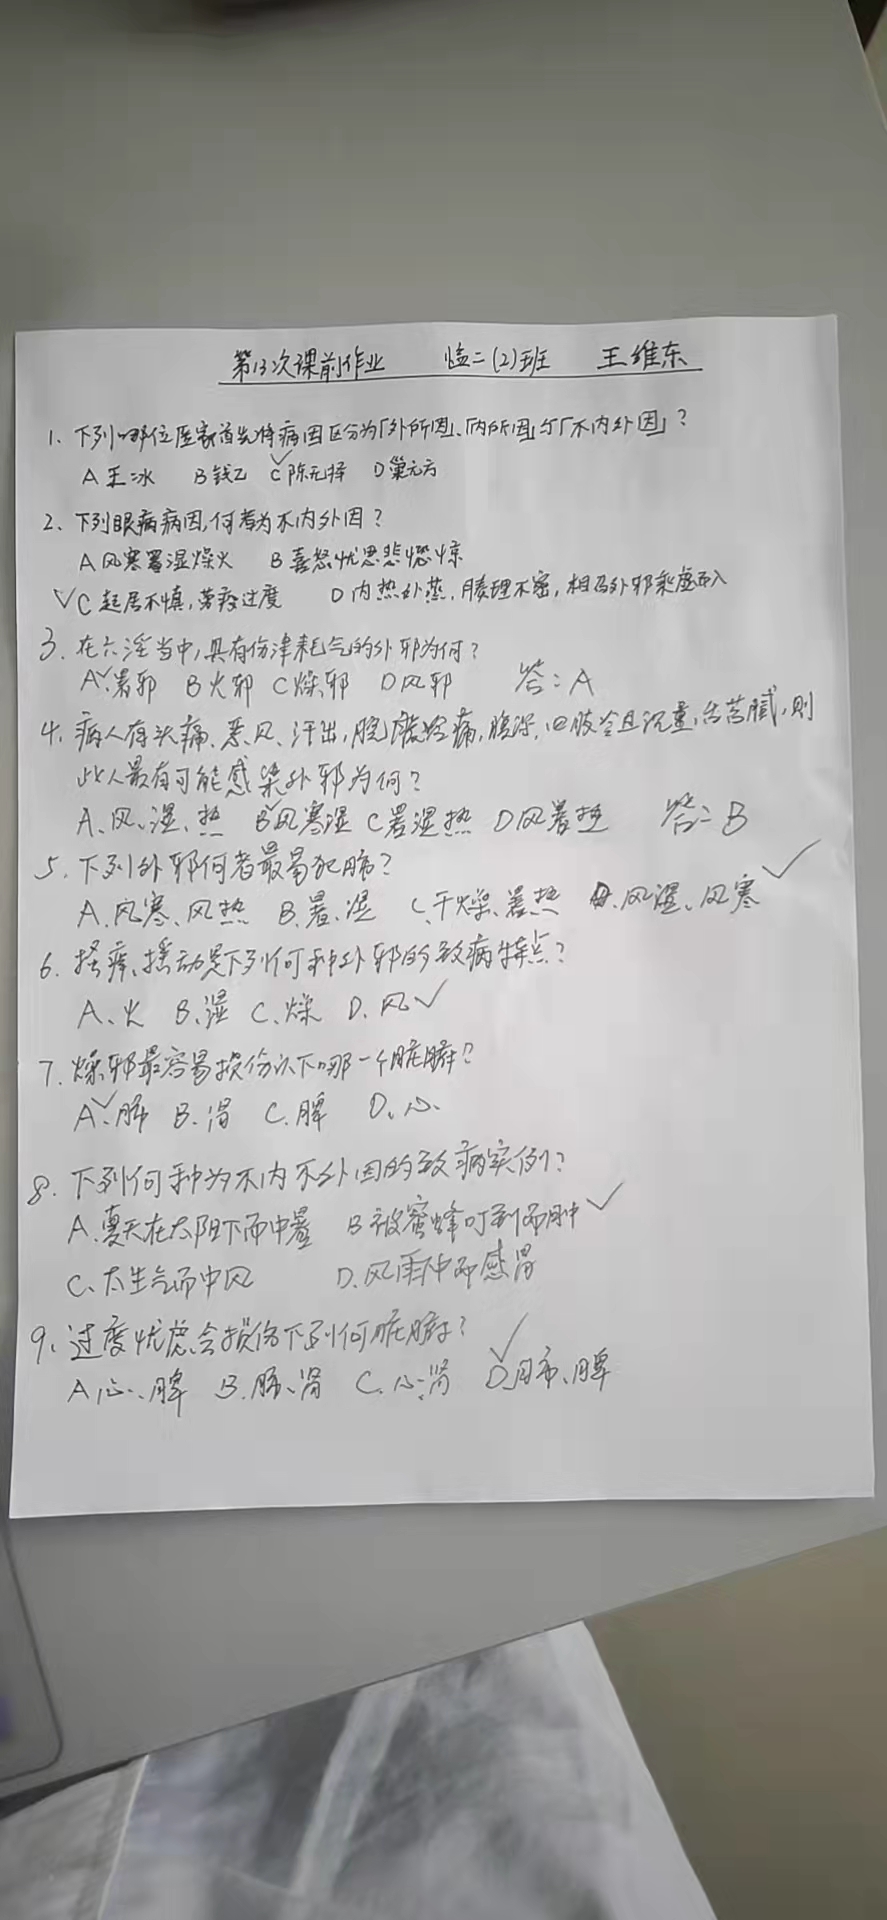 第13次课前作业 临二(2)班 王维东
1. 下列哪位医家首先将病因区分为「外所因」、「内所因」与「不内外因」?
A 王冰 B 钱乙 C 陈无择 D 巢元方
2. 下列眼病病因,何者为不内外因?
A 风寒暑湿燥火 B 喜怒忧思悲恐惊
√C 起居不慎,劳瘁过度 D 内热外蒸,腠理不密,相召外邪乘虚而入
3. 在六淫当中,具有伤津耗气的外邪为何?
A.暑邪 B 火邪 C 燥邪 D 风邪 答:A
4. 病人有头痛、恶风、汗出,脘腹冷痛,腹泻,四肢冷且沉重,舌苔腻,则
此人最有可能感染外邪为何?
A、风、湿、热 B 风寒湿 C 暑湿热 D 风暑热 答:B
5. 下列外邪何者最易犯肺?
A.风寒、风热 B.暑、湿 C.干燥、暑热 D.风湿、风寒 √
6. 搔痒、摇动是下列何种外邪的致病特点?
A、火 B.湿 C.燥 D.风√
7. 燥邪最容易损伤以下哪一个脏腑?
A.肺 B.胃 C.脾 D.心
8. 下列何种为不内不外因的致病实例?
A.夏天在太阳下而中暑 B 被蜜蜂叮到而肿 √
C.大生气而中风 D.风雨冲而感冒
9、过度忧虑会损伤下列何脏腑?
A.心、脾 B.肺、肾 C.心、肾 D.肺、脾